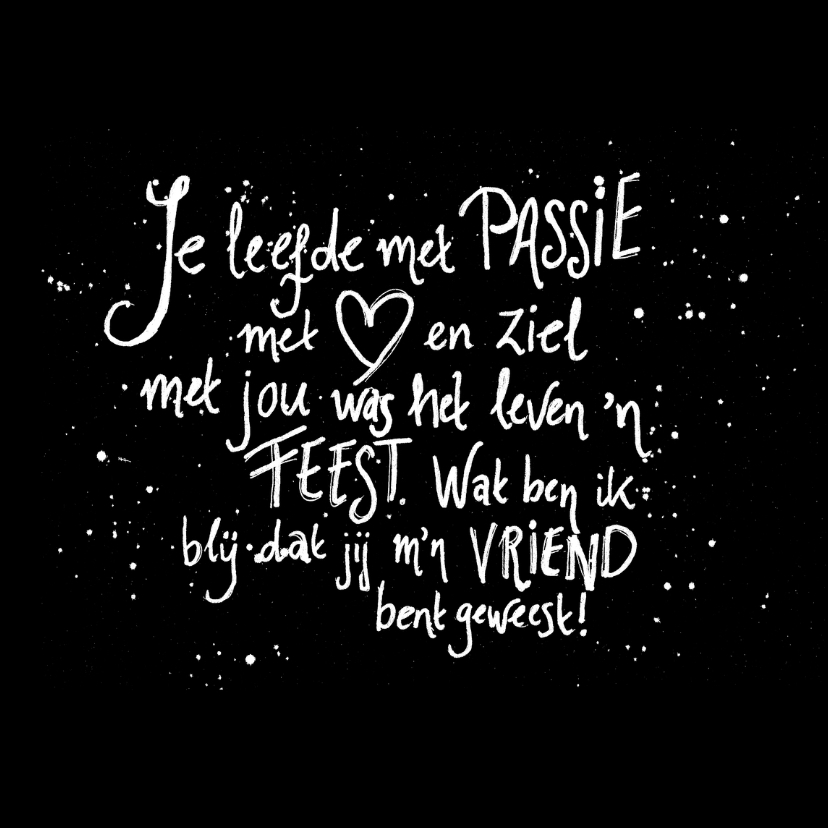 Je leefde met PASSiE
met ♡ en ziel
met jou was het leven 'n
FEEST. Wat ben ik
blij dat jij m'n VRiEND
bent geweest!